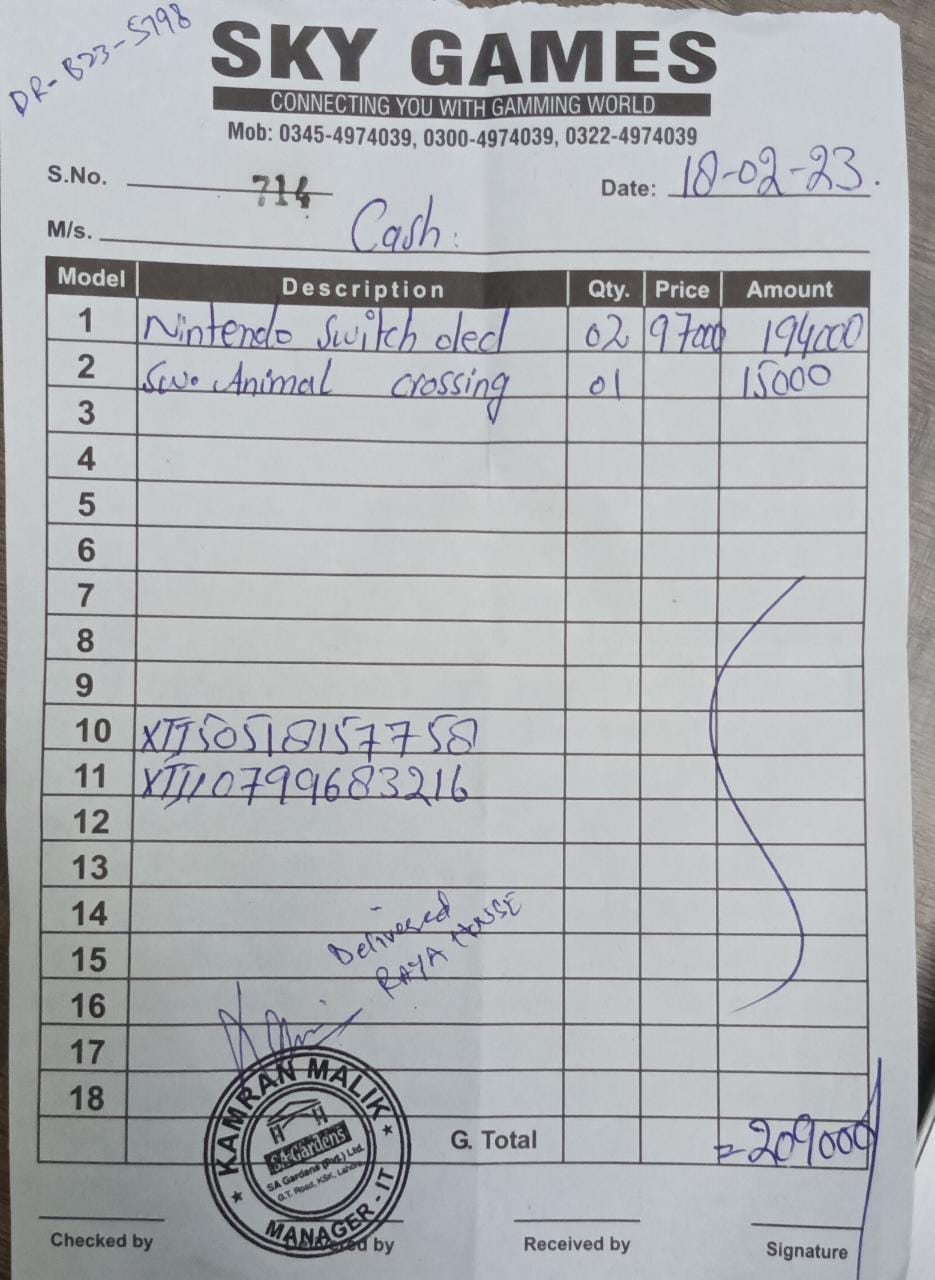 DR-B23-5798
SKY GAMES
CONNECTING YOU WITH GAMMING WORLD
Mob: 0345-4974039, 0300-4974039, 0322-4974039
S.No. 714
Date: 18-02-23.
M/s. Cash:
Model Description Qty. Price Amount
1 Nintendo Switch oled 02 97000 194000
2 Animal crossing 01 15000
3
4
5
6
7
8
9
10 XTJ50518157758
11 XTJ10799683216
12
13
14
15
16
17
18
Delivered
RAYA HOUSE
KAMRAN MALIK
SA Gardens
SA Gardens (Pvt.) Ltd.
G.T. Road, KSK, Lahore
MANAGER - IT
G. Total =209000
Checked by
Delivered by
Received by
Signature